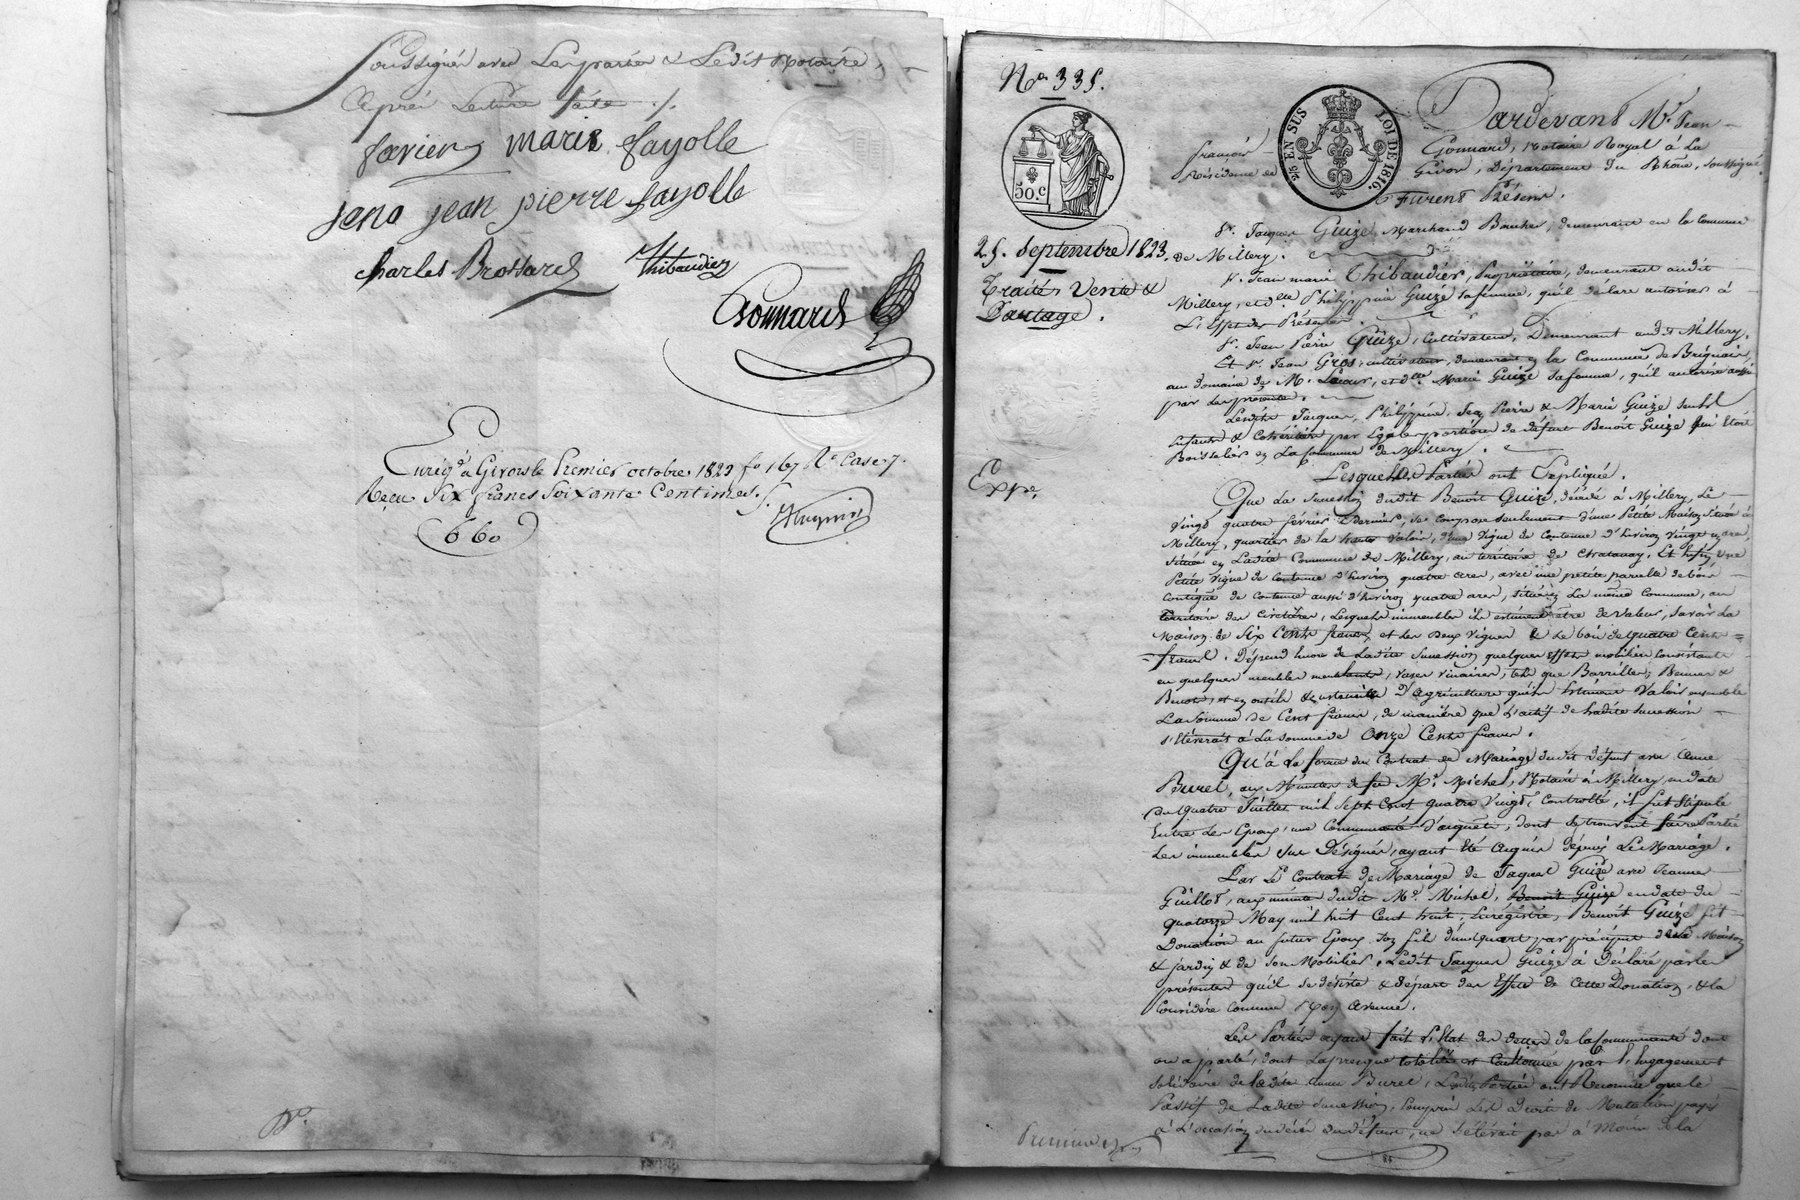 Soussignés avec Les parties & Ledit Notaire,
Après Lecture faite ./.
favier marie fayolle
jeno jean pierre fayolle
charles Brossard Thibaudier
Gonnard
Enrég.é à Givors le Premier octobre 1823 f.o 167 R.o Case 7.
Reçu Six francs Soixante Centimes.
6 60
N.o 335.
50.c
EN SUS LOI DE 1816.
25. Septembre 1823.
Traité, Vente &
Partage.
Exp.
Pardevant M.e Jean
françois Gonnard, Notaire Royal à La
Résidence de Givors, Département du Rhône, soussigné
Furent Présens.
S.r Jacques Guize, Marchand Boucher, demeurant en la Commune
de Millery.
S.r Jean marie Thibaudier, Propriétaire, demeurant audit
Millery, et d.lle Philippine Guize sa femme, qu'il déclare autoriser à
L'Effet des Présentes.
S.r Jean Pierre Guize, Cultivateur, Demeurant audit Millery.
Et S.r Jean Gros, cultivateur, demeurant en la Commune de Brignais,
au domaine de M. et d.lle Marie Guize sa femme, qu'il autorise aussi
par les présentes.
Lesdits Jacques, Philippine, Jean Pierre & Marie Guize seuls
Enfants & Cohéritiers par Egales portions de défunt Benoît Guize qui Etoit
Boisselier en La Commune de Millery.
Lesquelles Parties ont Expliqué.
Que La Succession dudit Benoît Guize, décédé à Millery, Le
Vingt quatre février dernier, se compose seulement d'une Petite Maison située à
Millery, quartier de la haute Valois, d'une Vigne de Contenue d'Environ Vingt ares,
située en Ladite Commune de Millery, au territoire de Chatanay, Et Enfin une
Petite Vigne de Contenue d'Environ quatre ares, avec une petite parcelle de bois
contigue de Contenue aussi d'Environ quatre ares, situées en La même Commune, au
territoire des Lesquels immeubles ils estiment être de Valeur, Savoir La
Maison de Six Cents francs, et les Deux Vignes & Le bois de quatre Cents
francs. Dépend encore de Ladite Succession quelques effets mobiliers Consistants
en quelques meubles meublants, Vases Vinaires, tels que Barrilles, Bennes &
Bennots, et en outils & ustensiles d'Agriculture qu'ils Estiment Valoir ensemble
La Somme de Cent francs, de manière que L'actif de Ladite Succession
s'élèverait à La Somme de Onze Cents francs.
Qu'à la forme du Contrat de Mariage dudit défunt avec Anne
Burel, aux Minutes de feu M.e Michel, Notaire à Millery, en date
du quatre Juillet mil Sept Cent quatre Vingt, Controllé, il fut Stipulé
Entre les Epoux une Communauté d'acquêts, dont se trouvent faire Partie
Les immeubles Sus Désignés, ayant Eté Acquis dépuis Le Mariage.
Par Le Contrat de Mariage de Jaques Guize avec Jeanne
Guillot, aux minutes dudit M.e Michel, Benoît Guize en date du
quatorze May mil huit Cent huit, Enrégistré, Benoît Guize fit
Donation au futur Epoux Son fils d'un quart par préciput de sa Maison
& jardin & de son Mobilier. Ledit Jacques Guize à Déclaré par les
présentes qu'il se désiste & départ des Effets de Cette Donation, & la
Considère Comme Non Avenue.
Les Parties ayant fait l'Etat des dettes de la Communauté dont
on a parlé, dont La presque totalité est Cautionnée par l'Engagement
Solidaire de ladite Anne Burel, Lesdites Parties ont Reconnu que le
Passif de Ladite Succession, Compris Les Droits de Mutation payés
à L'occasion du décès du défunt, ne S'élèverait pas à Moins de la